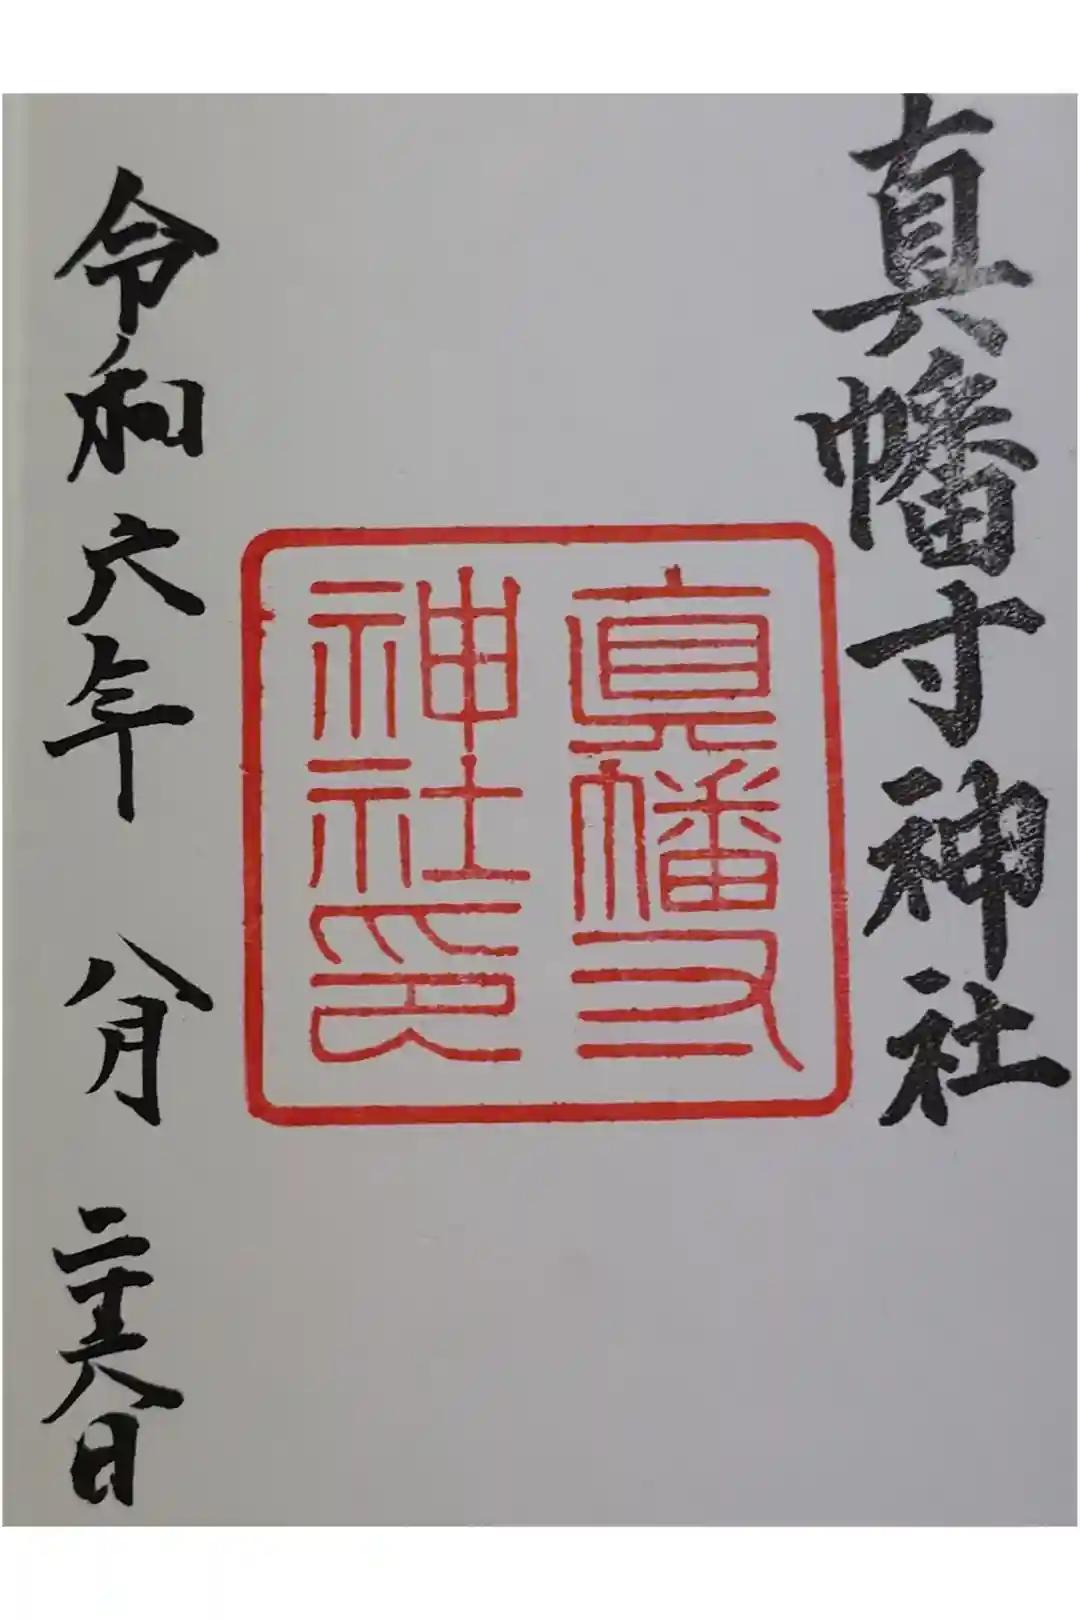 真幡寸神社
真幡寸
神社印
令和六年 八月 二十六日